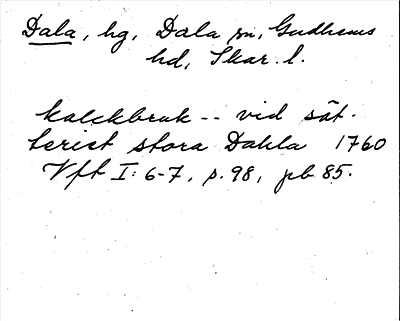 Dala, hg, Dala sn, Gudhems
hd, Skar. l.
kalckbruk -- vid sät-
teriet stora Dahla 1760
Vft I: 6-7, p. 98, pb 85.